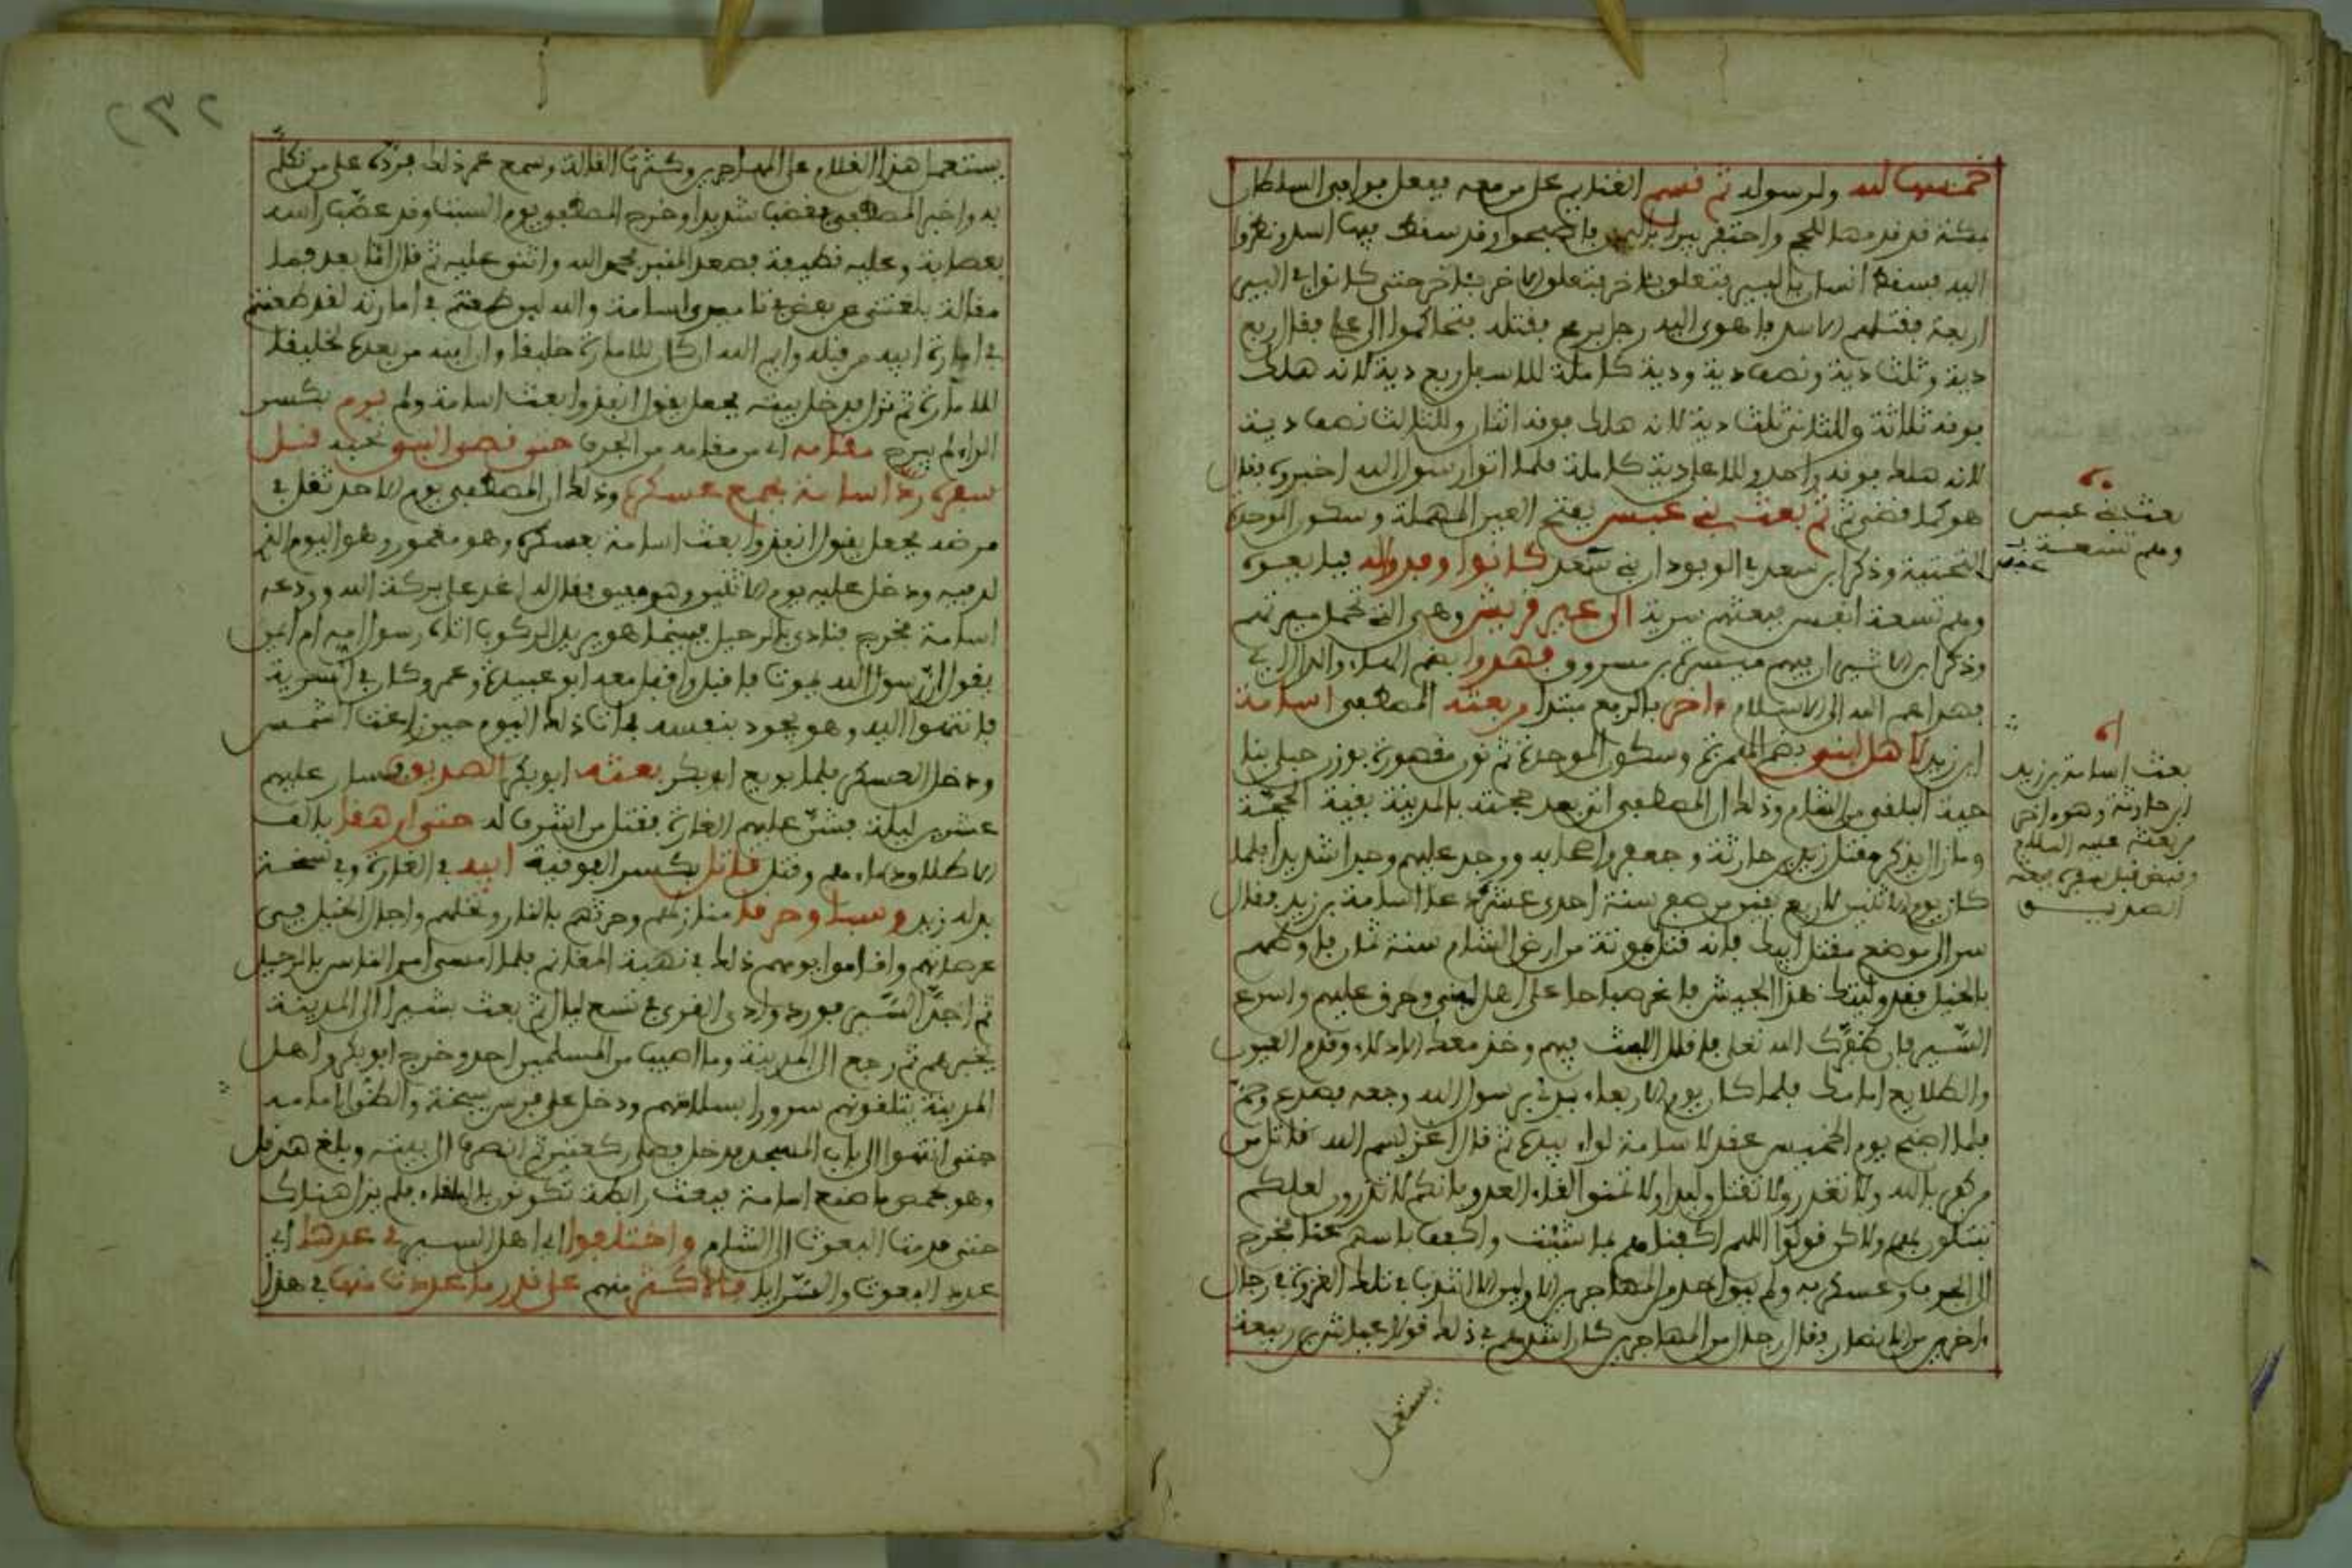 خمسها لله ولرسوله ثم قسم الغنايم على من معه ففعل فوافى السلطان
بمكة قد قدمها للحج واحتفر فاصبحوا وقد سقط فيها اسد ونظروا
اليه فسقط انسان بالبير فتعلق باخر فتعلق الاخر باخر حتى كانوا في البير
اربعة فقتلهم الاسد فاهوى اليه رجل برمح فقتله فتحاكموا الى علي فقال ربع
دية وثلث دية ونصف دية ودية كاملة للاسفل ربع دية لانه هلك
فوقه ثلاثة وللثاني ثلث دية لانه هلك فوقه اثنان وللثالث نصف دية
لانه هلك فوقه واحد وللاعلى دية كاملة فلما اتوا رسول الله اخبروه فقال
هو كما قضى ثم بعث بني عبس بفتح العين المهملة وسكون الموحدة
التحتية وذكر ابن سعد في الوفود ان بني سعد كانوا وفدوا له قبل بعث
وهم تسعة انفس فبعثهم سرية الى عير قريش وهي التي تحمل ميرتهم
وذكر ابن الاثير ان فيهم ميسرة بن مسروق فهدوا بضم الهاء والدال اي
فهداهم الله الى الاسلام واخر بالرفع مبتدا من بعثه المصطفى اسامة
ابن زيد لاهل ابنى بضم الهمزة وسكون الموحدة ثم نون مقصورة بوزن حبلى بنا
حية البلقى من الشام وذلك ان المصطفى اقر بعد حجته بالمدينة بقية الحجة
وما زال يذكر مقتل زيد بن حارثة وجعفر واصحابه ووجد عليهم وجدا شديدا فلما
كان يوم الاثنين لاربع بقين من صفر سنة احدى عشرة دعا اسامة بن زيد فقال
سر الى موضع مقتل ابيك فانه قتل بموتة من ارض الشام سنة ثمان فاوطهم
بالخيل فقد وليتك هذا الجيش فاغر صباحا على اهل ابنى وحرق عليهم واسرع
السير فان ظفرك الله تعلى فاقلل اللبث فيهم وخذ معك الادلاء وقدم العيون
والطلايع امامك فلما كان يوم الاربعاء بدئ برسول الله وجعه فصدع وحم
فلما اصبح يوم الخميس عقد لاسامة لواء بيده ثم قال اغز بسم الله فقاتل من
كفر بالله ولا تغدروا ولا تقتلوا وليدا ولا تمنوا لقاء العدو فانكم لا تدرون لعلكم
تبتلون بهم ولاكن قولوا اللهم اكفناهم بما شئت واكفف باسهم عنا فخرج
الى الجرف وعسكر به ولم يبق احد من المهاجرين الاولين الا انتدب في تلك الغزوة في رجال
اخرين من الانصار فقال رجال من المهاجرين كان اشدهم في ذلك قولا عياش بن ربيعة
يستعمل
بعث بني عبس
وهم تسعة
بعث اسامة بن زيد
ابن حارثة وهو اخر
من بعثه عليه السلام
وقبض قبل سفره بعثه
الصديق
٢٣٢
يستعمل هذا الغلام على المهاجرين وكثرت القالة وسمع عمر ذلك فرده على من تكلم
به واخبر المصطفى فغضب شديدا وخرج المصطفى يوم السبت وقد عصب راسه
بعصابة وعليه قطيفة فصعد المنبر فحمد الله واثنى عليه ثم قال اما بعد فما
مقالة بلغتني عن بعضكم في تاميري اسامة والله لين طعنتم في امارته لقد طعنتم
في امارة ابيه من قبله وايم الله ان كان للامارة خليقا وان ابنه من بعده لخليقا
للامارة ثم نزل فدخل بيته فجعل يقول انفذوا بعث اسامة ولم يرم بكسر
الراء لم يبرح مقامه اي من مقامه من الجرف حتى قضى النبي نحبه قبل
سفره رد اسامة بجمع عسكره وذلك ان المصطفى يوم الاحد ثقل في
مرضه فجعل يقول انفذوا بعث اسامة بعسكره وهو مغمور وهو اليوم الذي
لد فيه ودخل عليه يوم الاثنين وهو مفيق فقال له اغد على بركة الله وودعه
اسامة فخرج فنادى بالرحيل فبينما هو يريد الركوب اتاه رسول امه ام ايمن
يقول ان رسول الله يموت فاقبل واقبل معه ابو عبيدة وعمر وكان في السرية
فانتهوا اليه وهو يجود بنفسه فمات ذلك اليوم حين زاغت الشمس
ودخل العسكر فلما بويع ابو بكر بعثه ابو بكر الصديق فسار عليهم
عشرين ليلة فشن عليهم الغارة فقتل من اشرف له حتى ارهفا بالف
الاطلاق دماءهم وقتل قاتل بكسر الفوقية ابيه في الغارة وفي نسخة
بدله زيد وسبا وحرقا منازلهم وحرثهم بالنار ونخلهم واجال الخيل في
عرصاتهم واقاموا يومهم ذلك في تعبية المغانم فلما امسى امر الناس بالرحيل
ثم اجد السير فورد وادي القرى في تسع ليال ثم بعث بشيرا الى المدينة
يخبرهم ثم رجع الى المدينة وما اصيب من المسلمين احد وخرج ابو بكر واهل
المدينة يتلقونهم سرورا بسلامتهم ودخل على فرس سبحة واللواء امامه
حتى انتهوا الى باب المسجد فدخل فصلى ركعتين ثم انصرف الى بيته وبلغ هرقل
وهو بحمص ما صنع اسامة فبعث رابطة تكون بالبلقاء فلم يزل هناك
حتى قدمت البعوث الى الشام واختلفوا اي اهل السير في عدها اي
عدد البعوث والسرايا فالاكثر منهم على قدر ما عددت منها في هذا